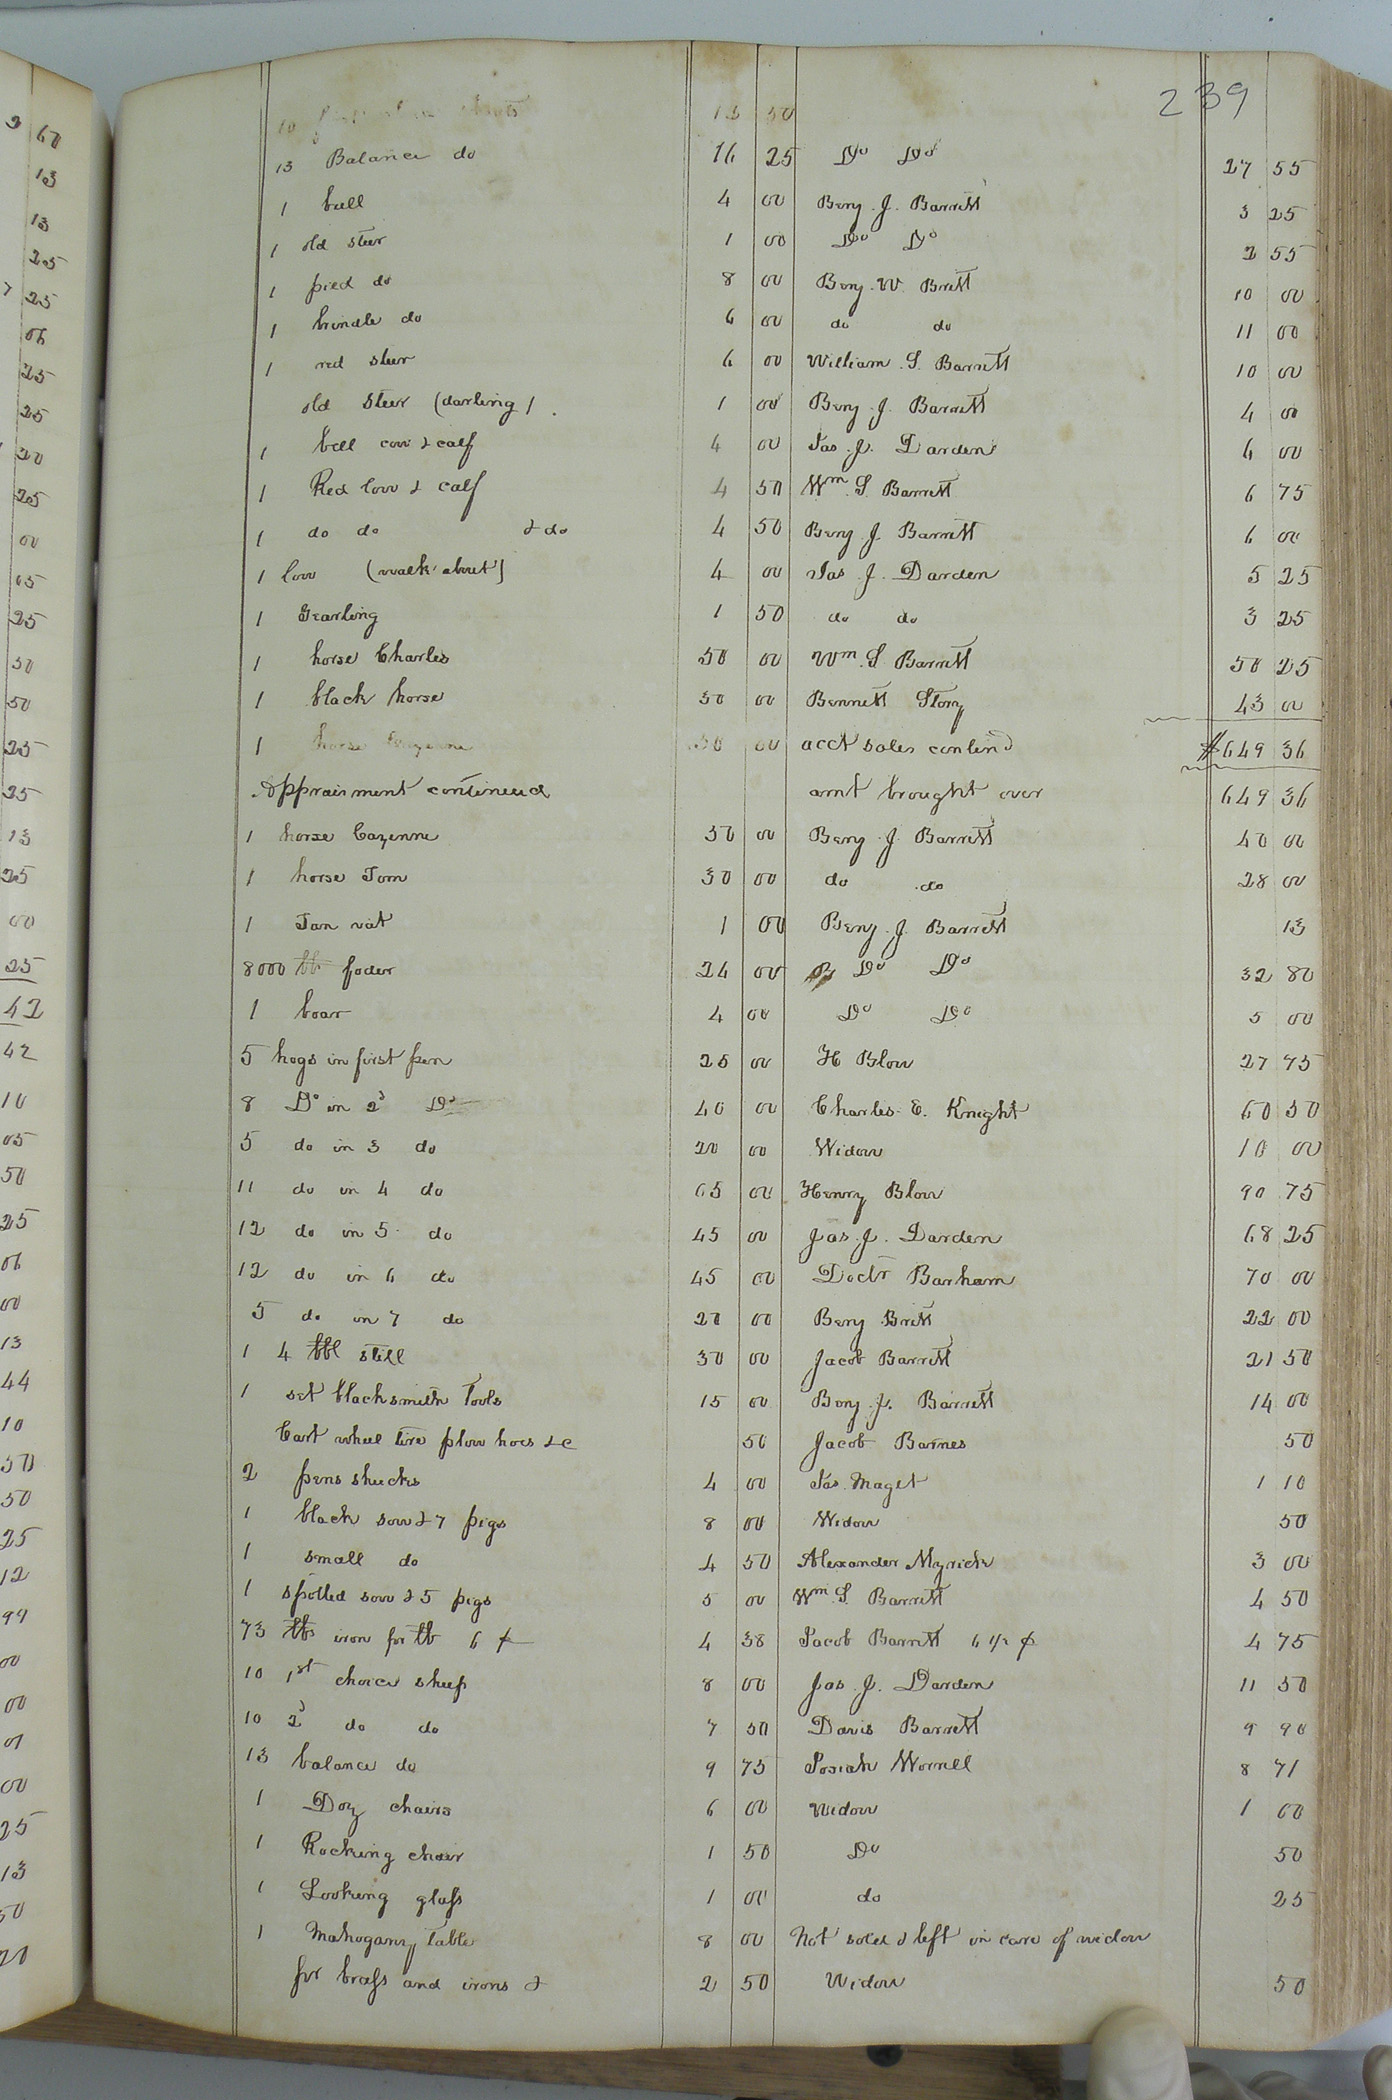 239
10 shoats 13 50
13 Balance do 16 25 Do Do 27 55
1 bull 4 00 Benj. J. Barrett 3 25
1 old steer 1 00 Do Do 2 55
1 pied do 8 00 Benj. W. Britt 10 00
1 brindle do 6 00 do do 11 00
1 red steer 6 00 William S. Barrett 10 00
old steer (darling) 1 00 Benj. J. Barrett 4 00
1 bell cow & calf 4 00 Jas. J. Darden 6 00
1 Red Cow & calf 4 50 Wm. S. Barrett 6 75
1 do do & do 4 50 Benj J Barrett 6 00
1 Cow (walk about) 4 00 Jas. J. Darden 5 25
1 Yearling 1 50 do do 3 25
1 horse Charles 50 00 Wm. S Barrett 50 25
1 black horse 30 00 Bennett Story 43 00
1 horse Cayenne 50 00 acct sales contind $649 36
Appraisment continued amt brought over 649 36
1 horse Cayenne 50 00 Benj J Barrett 40 00
1 horse Tom 30 00 do do 28 00
1 Tan vat 1 00 Benj. J. Barrett 13
8000 lb foder 24 00 Do Do 32 80
1 boar 4 00 Do Do 5 00
5 hogs in first pen 25 00 H Blow 27 75
8 Do in 2d Do 40 00 Charles E. Knight 60 50
5 do in 3 do 20 00 Widow 10 00
11 do in 4 do 65 00 Henry Blow 90 75
12 do in 5 do 45 00 Jas. J. Darden 68 25
12 do in 6 do 45 00 Doctr Barham 70 00
5 do in 7 do 20 00 Benj Britt 22 00
1 4 bbl still 30 00 Jacob Barrett 21 50
1 set blacksmith Tools 15 00 Benj. J. Barrett 14 00
Cart wheel tire plow hoes &c 50 Jacob Barnes 50
2 pens shucks 4 00 Jas. Maget 1 10
1 black sow & 7 pigs 8 00 Widow 50
1 small do 4 50 Alexander Myrick 3 00
1 spotted sow & 5 pigs 5 00 Wm. S. Barrett 4 50
73 lbs iron pr lb 6 ¢ 4 38 Jacob Barrett 6 1/2 ¢ 4 75
10 1st choice sheep 8 00 Jas. J. Darden 11 50
10 2d do do 7 50 Davis Barrett 9 90
13 balance do 9 75 Josiah Worrell 8 71
1 Doz chairs 6 00 Widow 1 00
1 Rocking chair 1 50 Do 50
1 Looking glass 1 00 do 25
1 Mahogany Table 8 00 Not soled & left in care of widow
pr brass and irons & 2 50 Widow 50